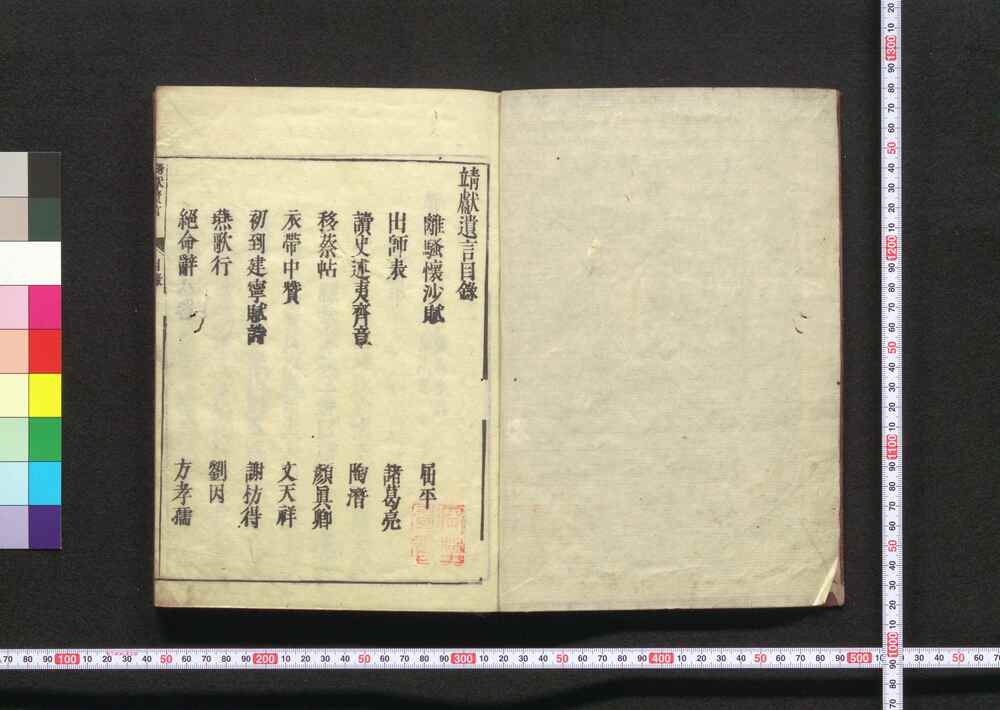 靖獻遺言目錄
離騷懷沙賦 屈平
出師表 諸葛亮
讀史述夷齊章 陶潛
移蔡帖 顏眞卿
衣帶中贊 文天祥
初到建寧賦詩 謝枋得
燕歌行 劉因
絕命辭 方孝孺
靖獻遺言 目錄